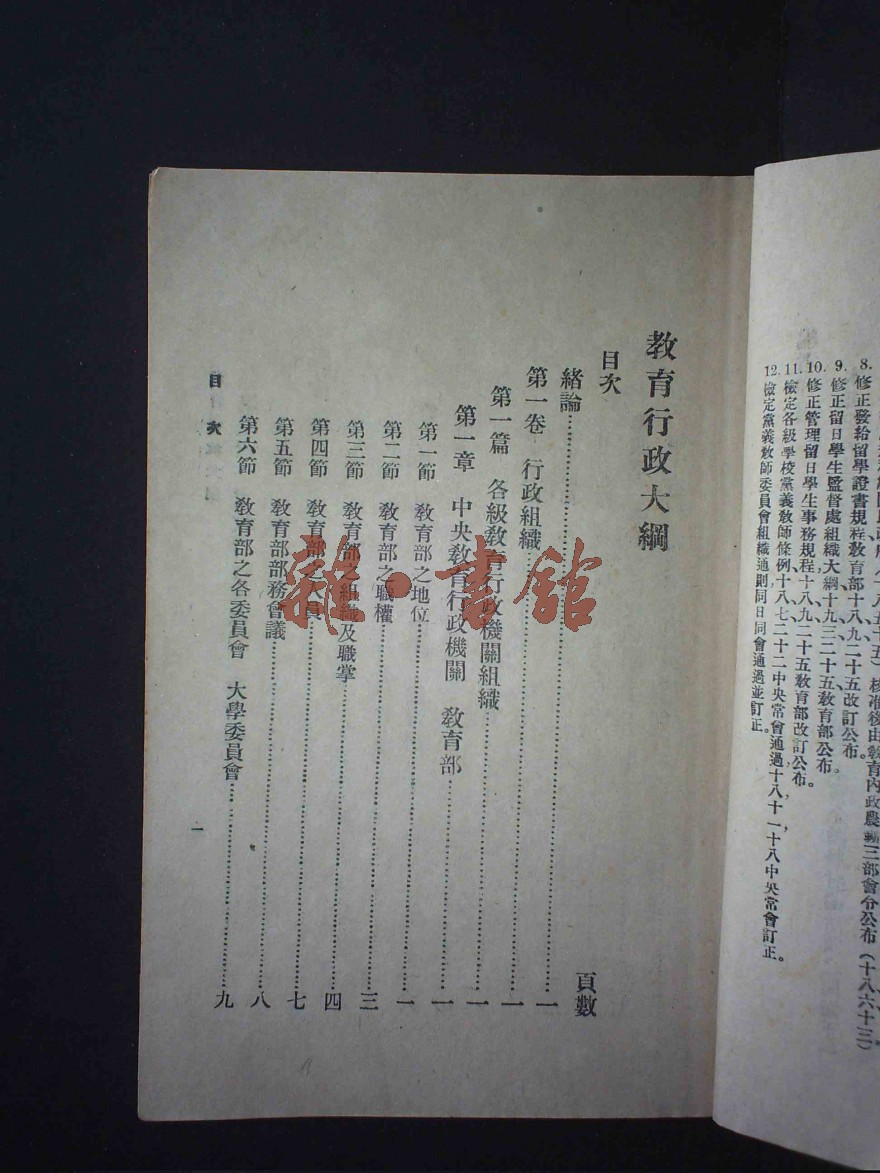 8. 修正發給留學證書規程教育部十八、九、二十五改訂公布。
9. 修正留日學生監督處組織大綱十九、三、二十五教育部公布。
10. 修正管理留日學生事務規程十八、九、二十五教育部改訂公布。
11. 檢定各級學校黨義教師條例十八、七、二十二中央常會通過，十八、十一、十八中央常會訂正。
12. 檢定黨義教師委員會組織通則同日同會通過並訂正。
教育行政大綱
目次
頁數
緒論…一
第一卷 行政組織…一
第一篇 各級教育行政機關組織…一
第一章 中央教育行政機關 教育部…一
第一節 教育部之地位…一
第二節 教育部之職權…三
第三節 教育部之組織及職掌…四
第四節 教育部之人員…七
第五節 教育部部務會議…八
第六節 教育部之各委員會 大學委員會…九
目次
一
雜·書館